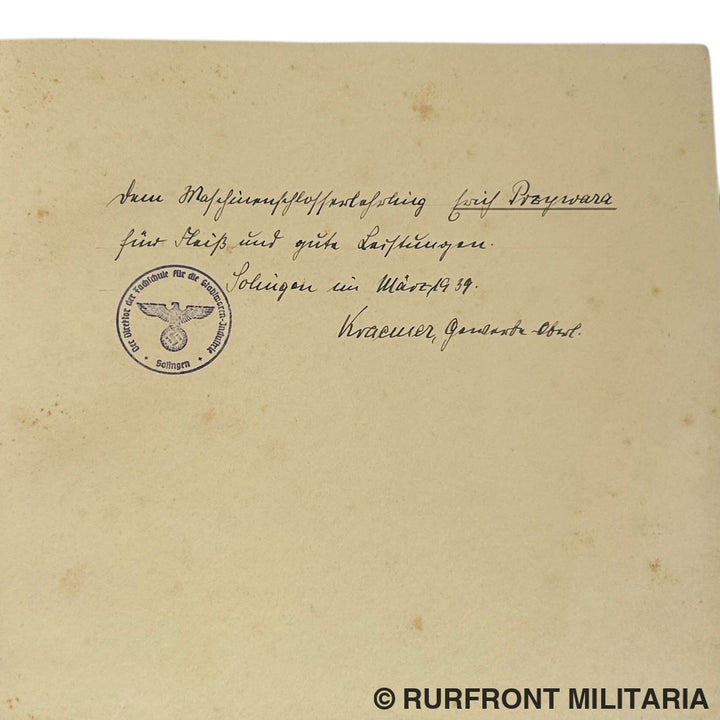 Dem Maschinenschlosserlehrling Erich Przywara
für Fleiß und gute Leistungen.
Solingen im März 1939.
Kraemer, Gewerbe-Oberl.
Der Direktor der Fachschule für die Stahlwaren-Industrie
Solingen
© RURFRONT MILITARIA